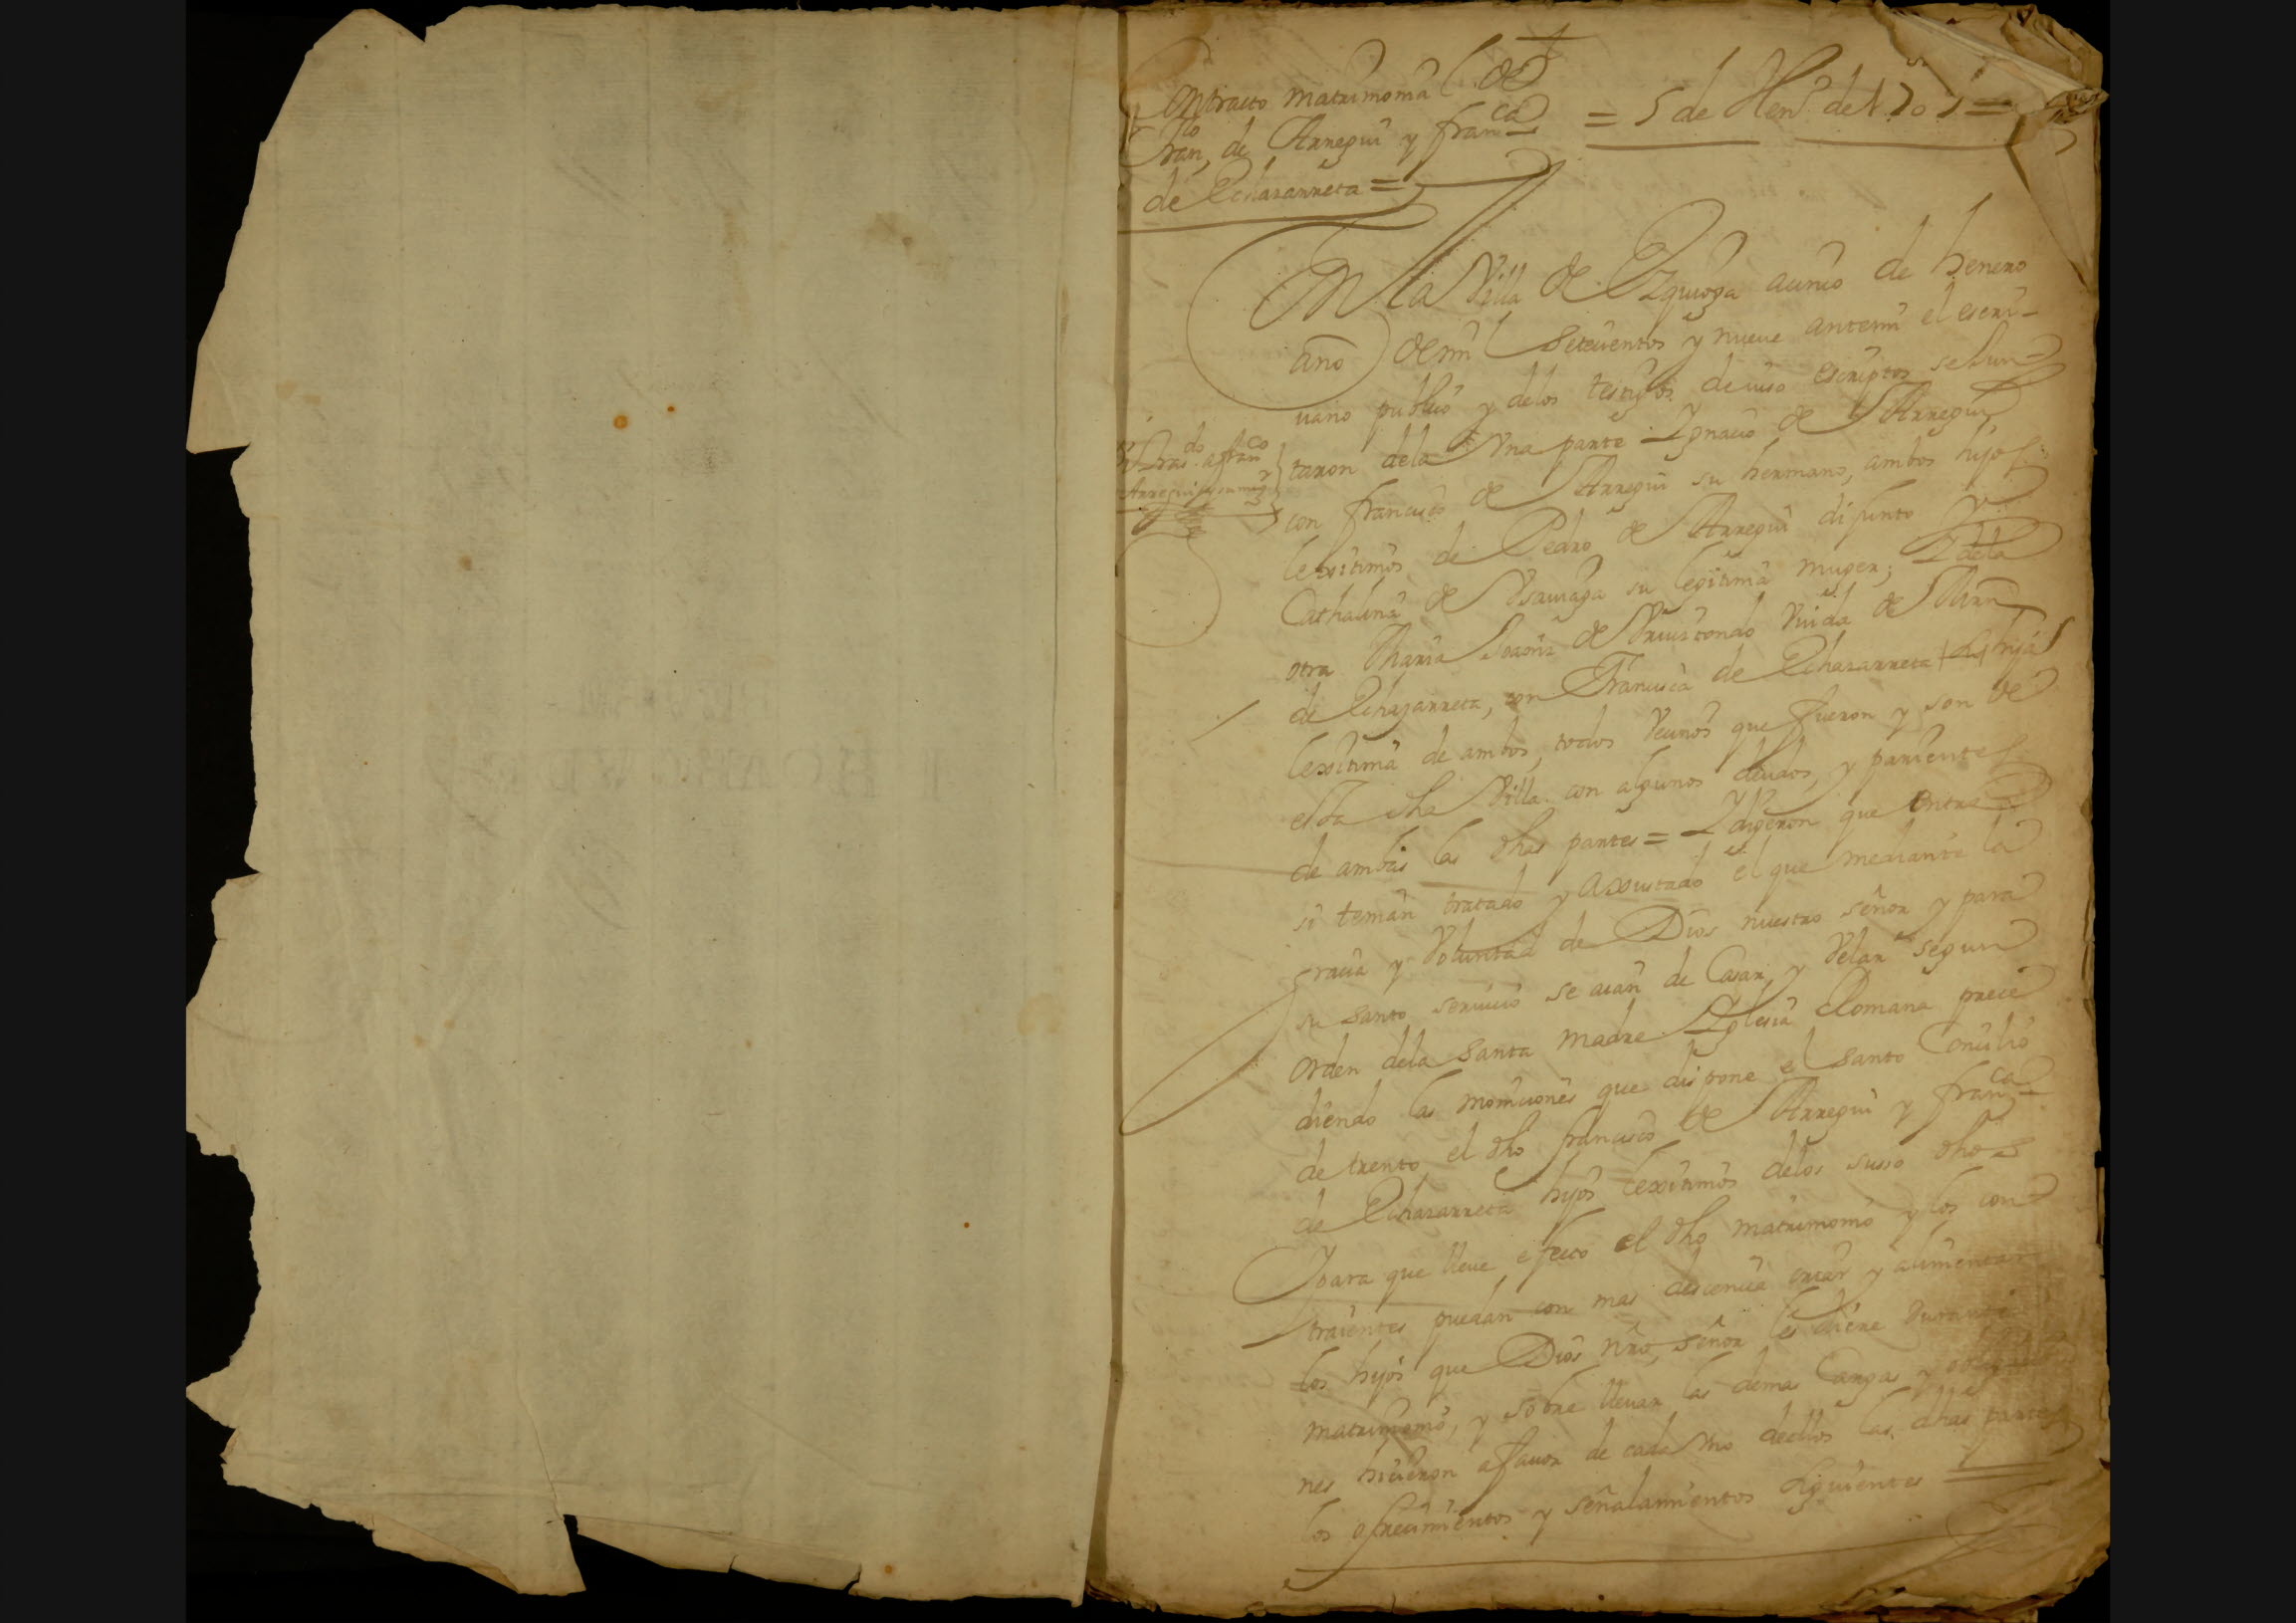 Contracto matrimonial de
Fran.co de Arregui y fran.ca
de Echazarreta =
= 5 de Hen.º de 1709 =
En la Villa de Ezquioga a cinco de henero
año de mil Setecientos y nueve ante mi el escri-
uano publico y de los testigos de iuso escriptos se Jun=
taron de la Vna parte Ignacio de Arregui
con francisco de Arregui su hermano, ambos hijos
lexitimos de Pedro de Arregui difunto y
Cathalina de su legitima muger; Y de la
otra Maria de Vruiztondo Viuda de
de Echazarreta, con Francisca de Echazarreta hija
lexitima de ambos, todos Vecinos que fueron y son de
esta dha Villa con algunos deudos, y parientes
de ambas las dhas partes = Y digeron que entre
si tenian tratado y axustado el que mediante la
gracia y Voluntad de Dios nuestro señor y para
su santo seruicio se aian de Casar, y Velar segun
orden de la santa madre Yglesia Romana prece
diendo las moniciones que dispone el santo Concilio
de trento el dho francisco de Arregui y fran.ca
de Echazarreta hijos lexitimos de los suso dhos
Y para que lleue efecto el dho matrimonio y los con
traientes puedan con mas descencia criar y alimentar
los hijos que Dios nro, señor les diere durante
matrimonio, y sobre lleuar las demas Cargas y obligacio
nes hicieron a fauor de cada Vno dellos las dhas partes
los ofrecimientos y señalamientos siguientes